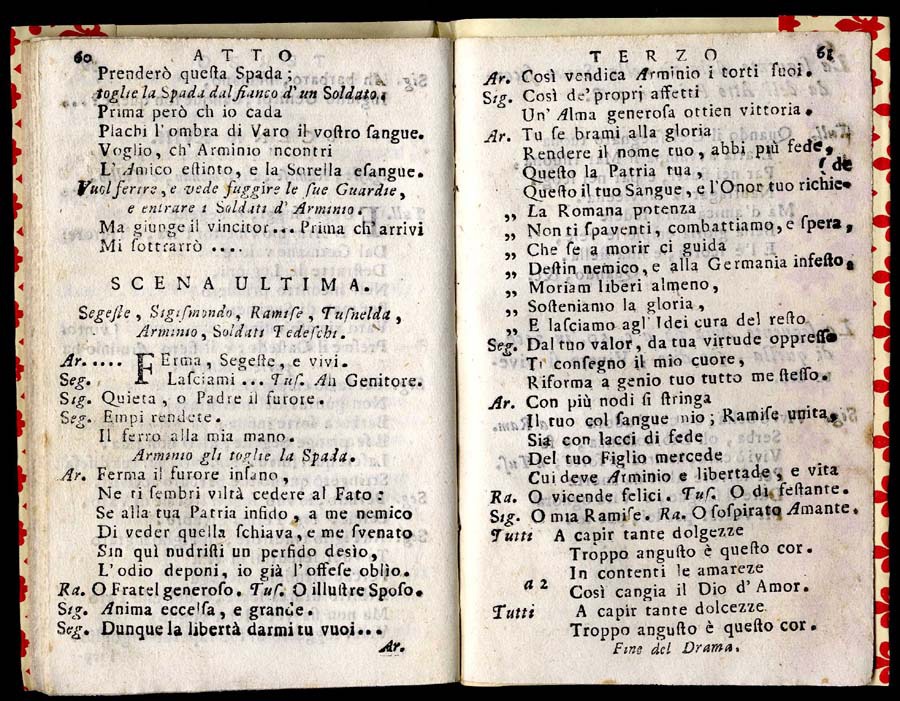 60 ATTO
Prenderò queſta Spada;
toglie la Spada dal fianco d'un Soldato.
Prima però ch io cada
Plachi l'ombra di Varo il voſtro ſangue.
Voglio, ch' Arminio ncontri
L'Amico eſtinto, e la Sorella eſangue.
Vuol ferire, e vede fuggire le ſue Guardie,
e entrare i Soldati d'Arminio.
Ma giunge il vincitor... Prima ch'arrivi
Mi ſottrarrò ....
SCENA ULTIMA.
Segeſte, Sigiſmondo, Ramiſe, Tuſnelda,
Arminio, Soldati Tedeſchi.
Ar. .... FErma, Segeſte, e vivi.
Seg. Laſciami... Tuſ. Ah Genitore.
Sig. Quieta, o Padre il furore.
Seg. Empi rendete.
Il ferro alla mia mano.
Arminio gli toglie la Spada.
Ar. Ferma il furore inſano,
Ne ti ſembri viltà cedere al Fato:
Se alla tua Patria infido, a me nemico
Di veder quella ſchiava, e me ſvenato
Sin quì nudriſti un perfido desìo,
L'odio deponi, io già l'offeſe oblìo.
Ra. O Fratel generoſo. Tuſ. O illuſtre Spoſo.
Sig. Anima eccelſa, e grande.
Seg. Dunque la libertà darmi tu vuoi...
Ar.
TERZO 61
Ar. Così vendica Arminio i torti ſuoi.
Sig. Così de' proprj affetti
Un' Alma generoſa ottien vittoria.
Ar. Tu ſe brami alla gloria
Rendere il nome tuo, abbi più fede,
Queſto la Patria tua, (de
Queſto il tuo Sangue, e l'Onor tuo richie-
„ La Romana potenza
„ Non ti ſpaventi, combattiamo, e ſpera,
„ Che ſe a morir ci guida
„ Deſtin nemico, e alla Germania infeſto,
„ Moriam liberi almeno,
„ Soſteniamo la gloria,
„ E laſciamo agl' Idei cura del reſto
Seg. Dal tuo valor, da tua virtude oppreſſo
Ti conſegno il mio cuore,
Riforma a genio tuo tutto me ſteſſo.
Ar. Con più nodi ſi ſtringa
Il tuo col ſangue mio; Ramiſe unita,
Sia con lacci di fede
Del tuo Figlio mercede
Cui deve Arminio e libertade, e vita
Ra. O vicende felici. Tuſ. O dì feſtante.
Sig. O mia Ramiſe. Ra. O ſoſpirato Amante.
Tutti A capir tante dolgezze
Troppo anguſto è queſto cor.
In contenti le amareze
a 2 Così cangia il Dio d'Amor.
Tutti A capir tante dolcezze
Troppo anguſto è queſto cor.
Fine del Drama.